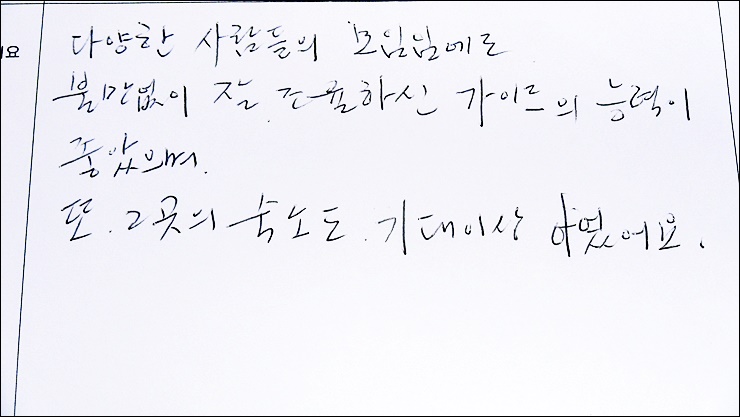 요
다양한 사람들의 모임임에도
불만없이 잘 조율하신 가이드의 능력이
좋았으며.
또. 그곳의 숙소도. 기대이상 이였어요.